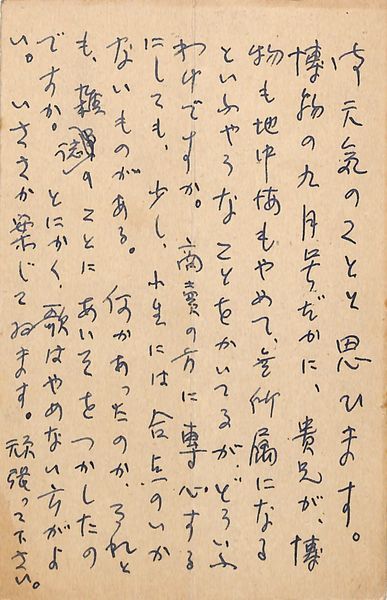 御元気のことと思ひます。
博物の九月号だかに、貴兄が、博
物も地中海もやめて、無所属になる
といふやうなことをかいてるが、どういふ
わけですか。商賣の方に專心する
にしても、少し、小生には合点のいか
ないものがある。何かあったのか、それと
も、雑のことにあいそをつかしたの
ですか。とにかく、歌はやめない方がよ
い。いささか案じてゐます。頑張って下さい。